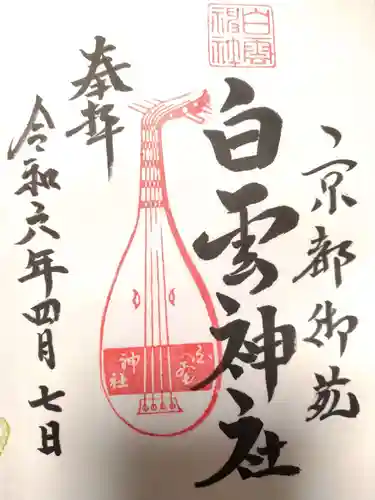 京都御苑
白雲神社
奉拝
令和六年四月七日
白雲
神社
白雲
神社